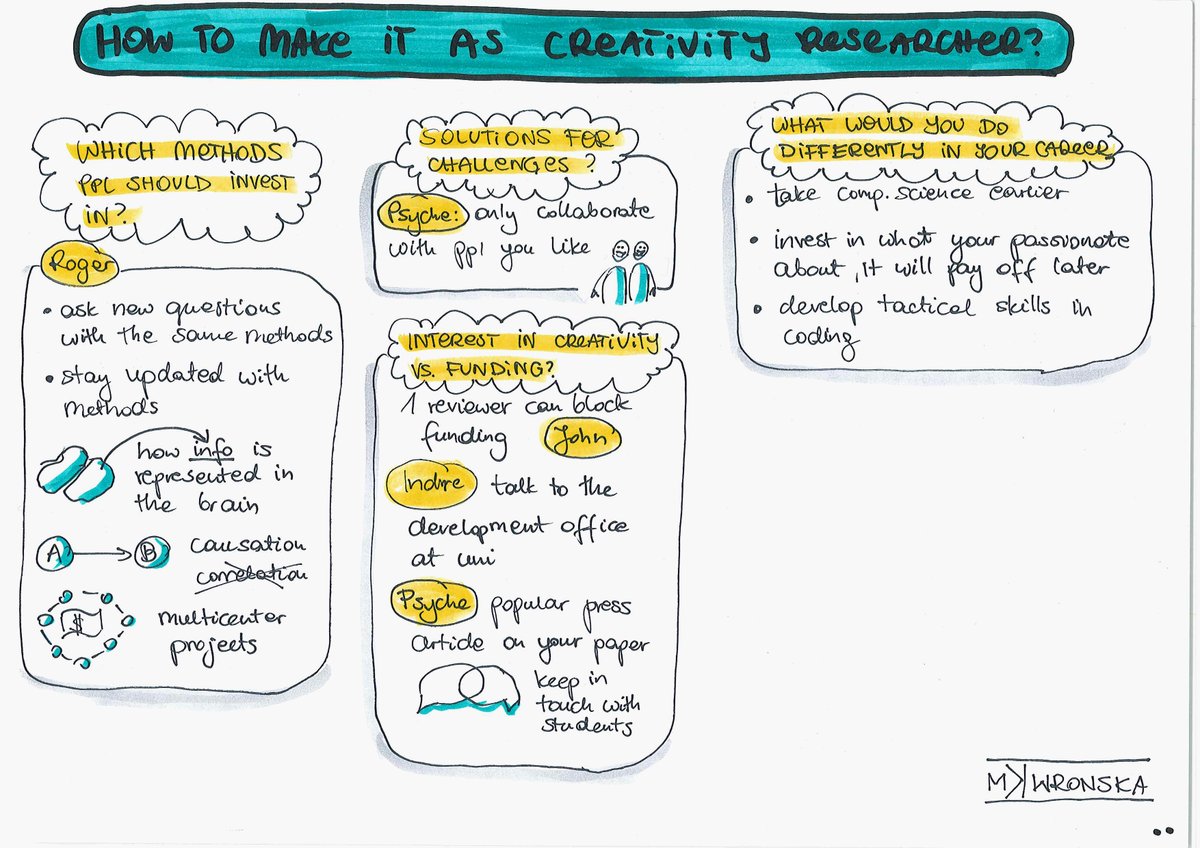 HOW TO MAKE IT AS CREATIVITY RESEARCHER?
WHICH METHODS
PPL SHOULD INVEST
IN?
Roger
• ask new questions
with the same methods
• stay updated with
methods
how info is
represented in
the brain
A B causation
correlation
$ multicenter
projects
SOLUTIONS FOR
CHALLENGES?
Psyche: only collaborate
with ppl you like
INTEREST IN CREATIVITY
VS. FUNDING?
1 reviewer can block
funding John
Indre talk to the
development office
at uni
Psyche popular press
article on your paper
keep in
touch with
students
WHAT WOULD YOU DO
DIFFERENTLY IN YOUR CAREER
• take comp. science earlier
• invest in what your passionate
about, it will pay off later
• develop tactical skills in
coding
MKWRONSKA